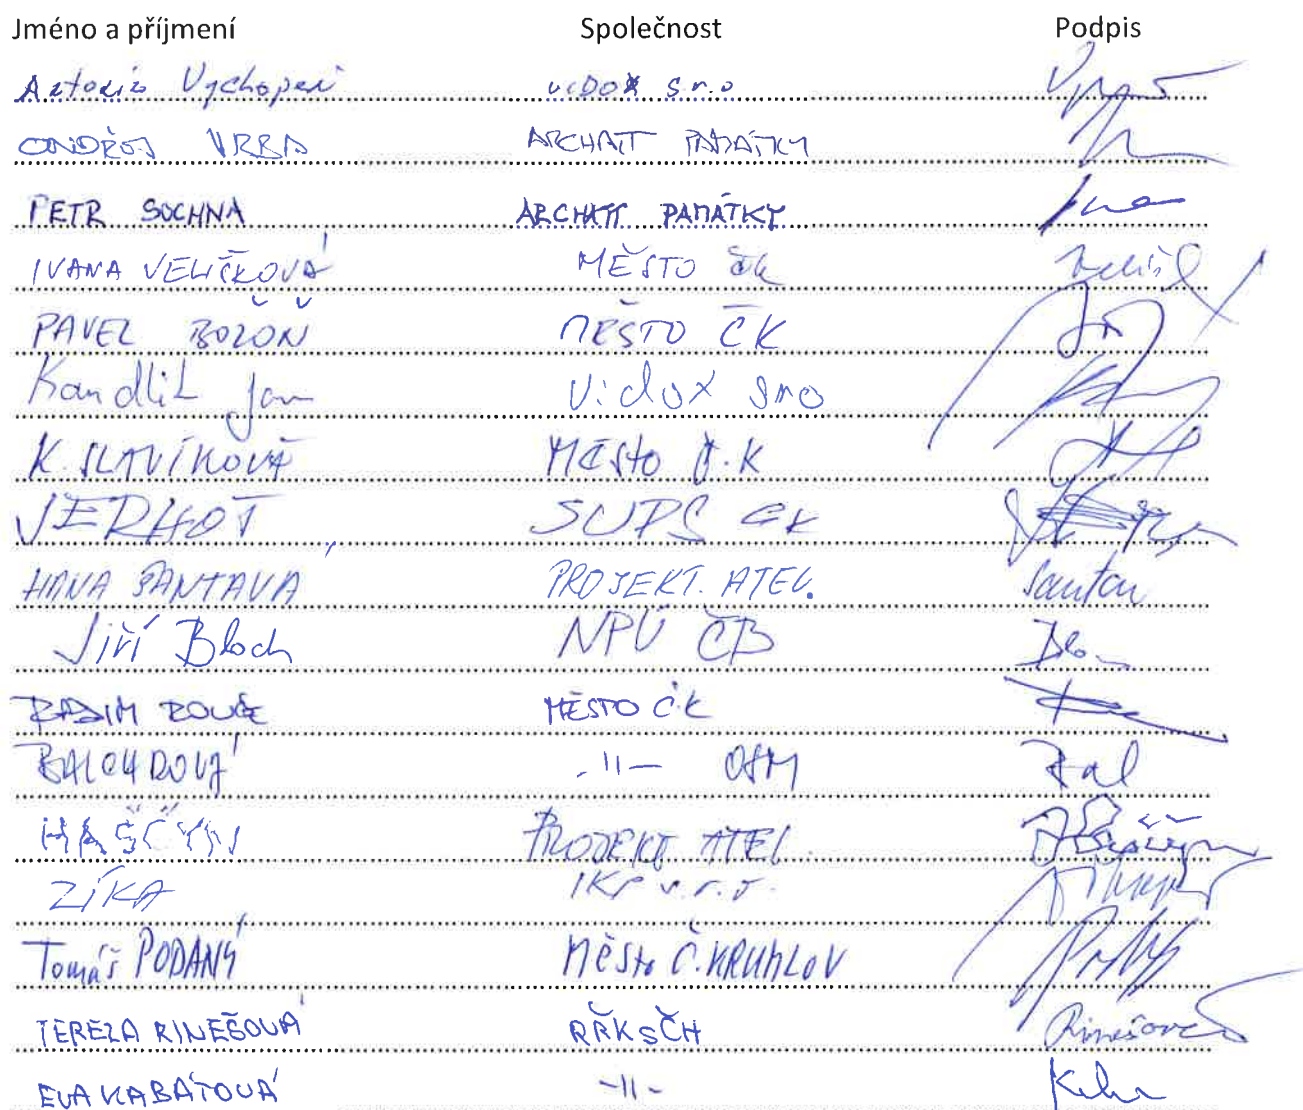 Jméno a příjmení Společnost Podpis
Vychopeň VIDOX s.r.o
ONDŘEJ VRBA ARCHATT PAMÁTKY
PETR SOCHNA ARCHATT PAMÁTKY
IVANA VELIČKOVÁ MĚSTO ČK
PAVEL BOZOŇ MĚSTO ČK
Kandlik Jan Vidox sro
K. SLAVÍKOVÁ MĚSto Č.K
JERHOT SUPŠ ČK
HANA ŠANTAVÁ PROJEKT. ATEL.
Jiří Bloch NPÚ ČB
RADIM ROUČE MĚSTO ČK
BALOUNOVÁ -11- OSM
HAŠČYN PROJEKT ATEL
ZÍKA IKP s.r.o.
Tomáš PODANÝ MĚSto Č.KRUMLOV
TEREZA RINEŠOVÁ RŘKSČH Rinešová
EVA KABÁTOVÁ -11-